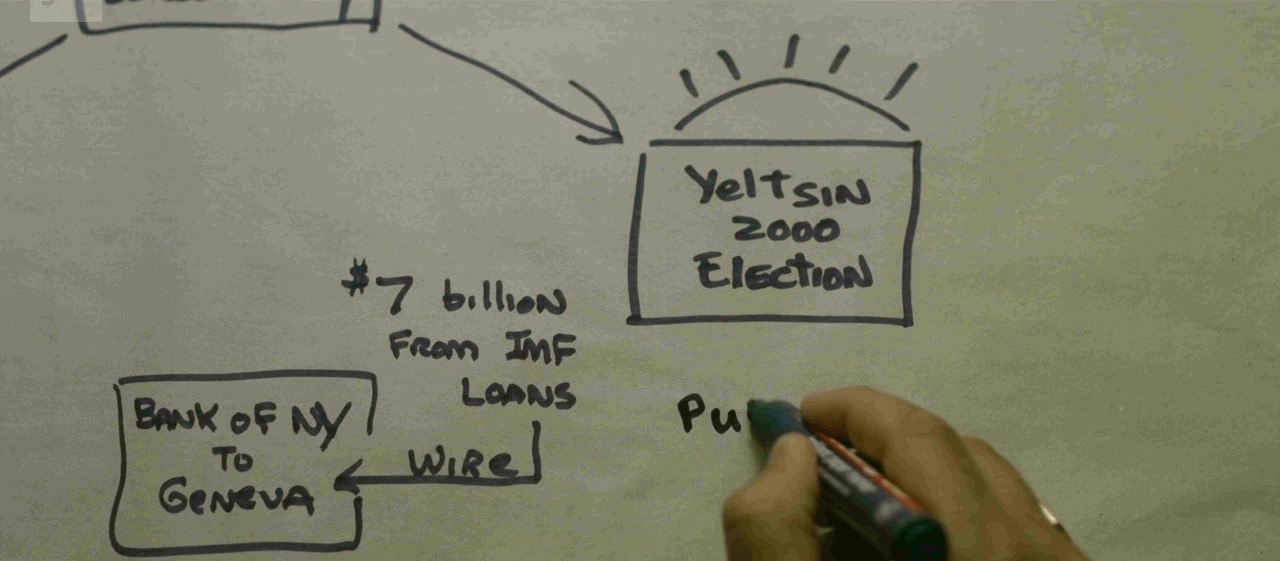 Yeltsin
2000
Election
$7 billion
From IMF
Loans
Bank of NY
To
Geneva
Wire
Pu